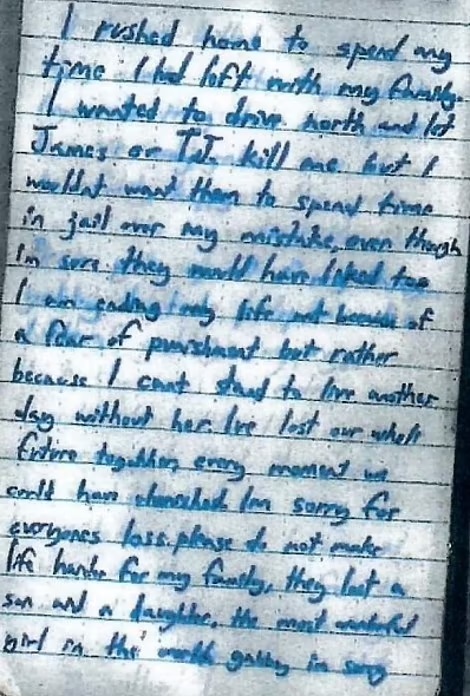 I rushed home to spend my
time I had left with my family.
I wanted to drive north and let
James or T.J. kill me but I
wouldnt want them to spend time
in jail over my mistake, even though
I'm sure they would have liked too
I am ending my life not because of
a fear of punishment but rather
because I cant stand to live another
day without her. Ive lost our whole
future together, every moment we
could have cherished. Im sorry for
everyones loss. please do not make
life harder for my family, they lost a
son and a daughter. the most wonderful
girl in the world gabby im sorry